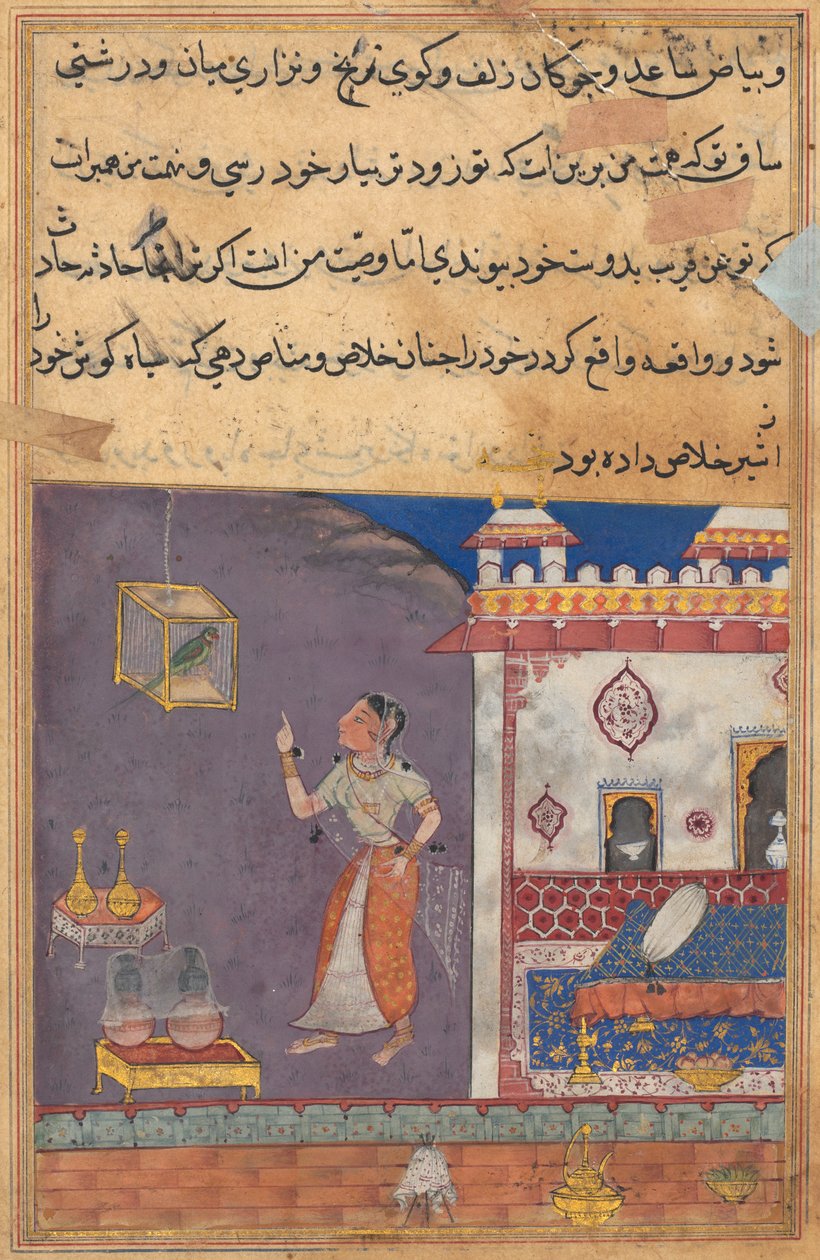 و بیاض ساعد و جوکان زلف و کوی زنخ و نزاری میان و درشتی
ساق تو که همت من برین است که تو زودتر بیار خود رسی و نهمت من همبر انست
که تو عن قریب بدوست خود پیوندی امّا وصیّت من اینست اکر ترا انجا حادثه حادث
شود و واقعه واقع کردد خود را جنان خلاص و مناص دهی که سیاه کوش خود را
از شیر خلاص داده بود